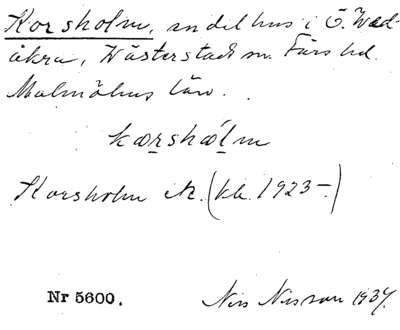 Korsholm, andelhus i Ö. Väd-
åkra, Västerstads sn. Färs hd.
Malmöhus län.
kærshålm
Korsholm ek. (kb. 1923-)
Nr 5600. Nils Nilsson 1934.